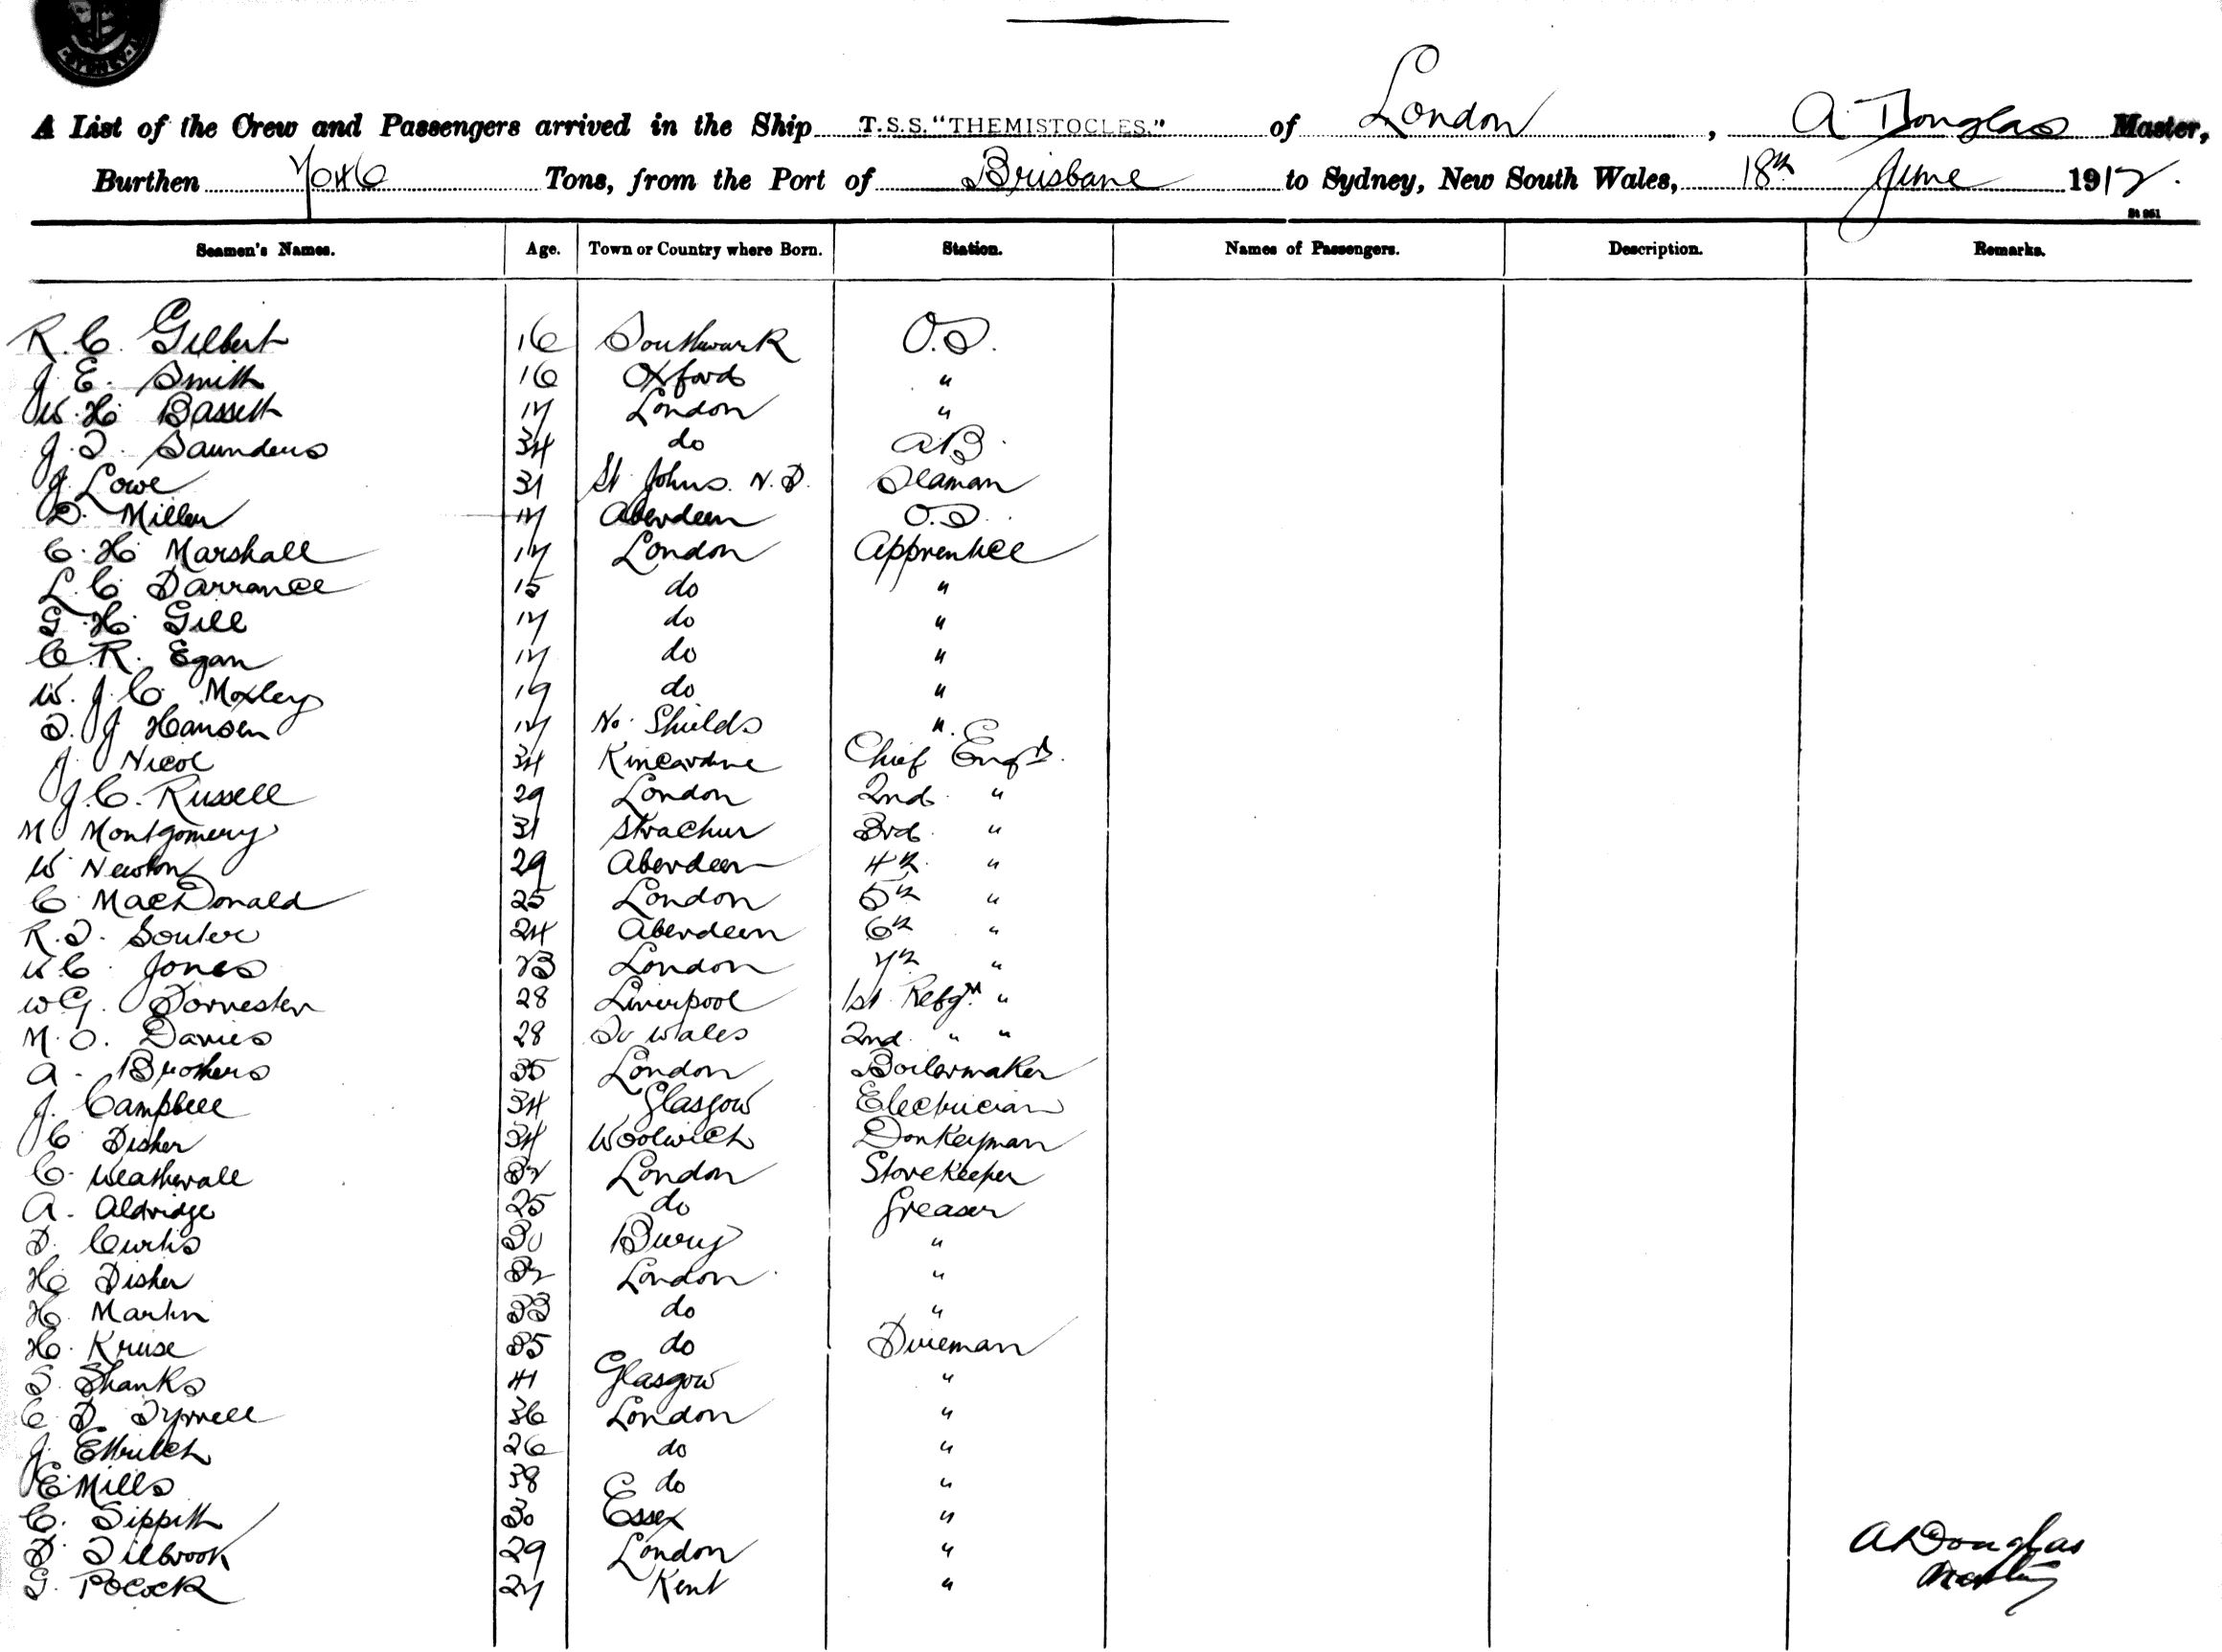 A List of the Crew and Passengers arrived in the Ship T.S.S. "THEMISTOCLES." of London, A. Douglas Master,
Burthen 7046 Tons, from the Port of Brisbane to Sydney, New South Wales, 18th June 1912.
St 951
Seamen's Names. Age. Town or Country where Born. Station. Names of Passengers. Description. Remarks.
R. C. Gilbert 16 Southwark O.S.
J. E. Smith 16 Oxford "
W. H. Bassett 17 London "
J. T. Saunders 34 do A.B.
J. Lowe 31 St Johns. N.F. Seaman
D. Miller 17 Aberdeen O.S.
C. H. Marshall 17 London Apprentice
L. C. Darrance 15 do "
G. H. Gill 17 do "
C. R. Egan 17 do "
W. J. C. Moxley 19 do "
T. J. Hansen 17 No. Shields "
J. Nicol 34 Kincardine Chief Engr.
J. C. Russell 29 London 2nd "
M Montgomery 31 Strachur 3rd "
W Newton 29 Aberdeen 4th "
C. MacDonald 25 London 5th "
R. T. Souter 24 Aberdeen 6th "
W C. Jones 23 London 7th "
W G. Forrester 28 Liverpool 1st Refgr "
M. O. Davies 28 So Wales 2nd " "
A. Brothers 35 London Boilermaker
J. Campbell 34 Glasgow Electrician
C Fisher 34 Woolwich Donkeyman
C. Weatherall 32 London Storekeeper
A. Aldridge 25 do Greaser
F. Curtis 30 Bury "
H Fisher 32 London "
H. Martin 33 do "
H. Kruse 35 do Fireman
S. Shanks 41 Glasgow "
C F Tyrrell 36 London "
J. Ettritch 26 do "
E Mills 38 do "
C. Sippitt 30 Essex "
F. Tilbrook 29 London "
G. Pocock 27 Kent "
A Douglas
Master